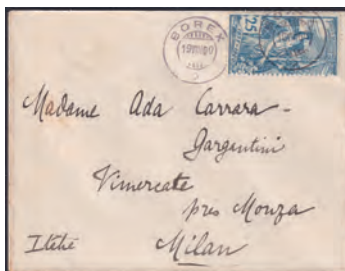 BOREX
25
Madame Ada Carrara -
Gargantini
Vimercate
près Monza
Italie
Milan